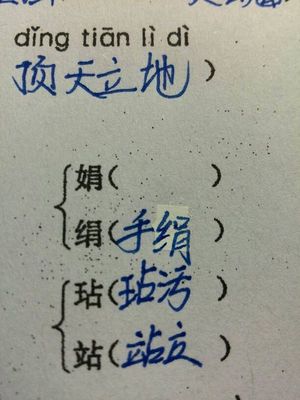 dǐng tiān lì dì
顶天立地）
娟（ ）
绢（手绢）
玷（玷污）
站（站立）